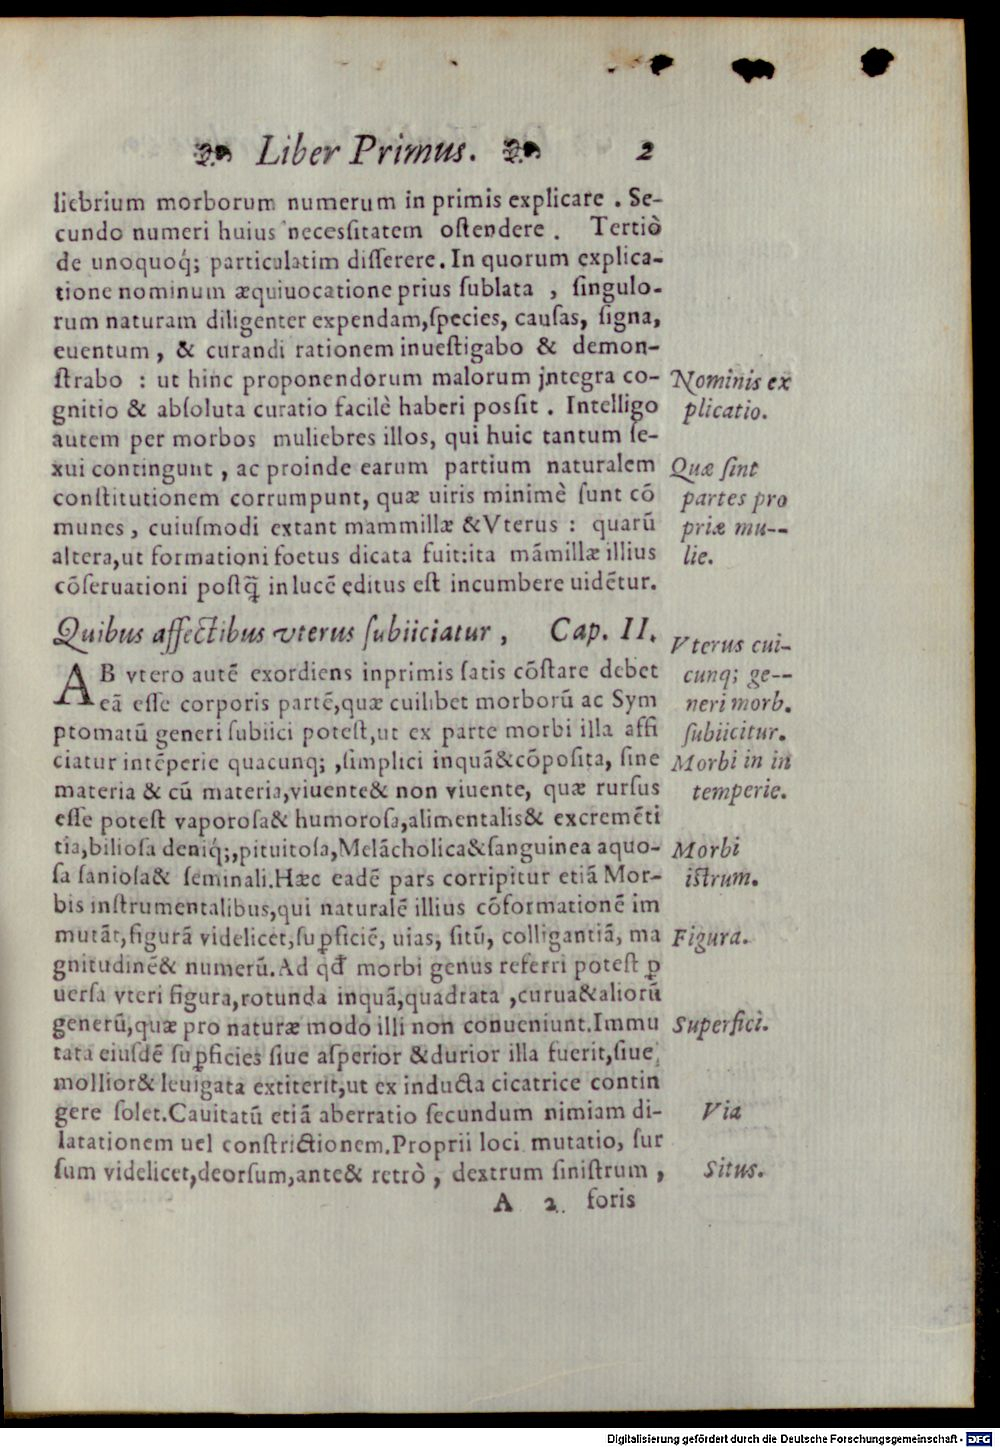 Liber Primus. 2
liebrium morborum numerum in primis explicare . Se-
cundo numeri huius necessitatem ostendere . Tertiò
de unoquoq́; particulatim disserere. In quorum explica-
tione nominum æquiuocatione prius sublata , singulo-
rum naturam diligenter expendam,species, causas, signa,
euentum , & curandi rationem inuestigabo & demon-
strabo : ut hinc proponendorum malorum jntegra co-
gnitio & absoluta curatio facilè haberi possit . Intelligo
autem per morbos muliebres illos, qui huic tantum se-
xui contingunt , ac proinde earum partium naturalem
constitutionem corrumpunt, quæ uiris minimè sunt cō
munes , cuiusmodi extant mammillæ &Vterus : quarū
altera,ut formationi foetus dicata fuit:ita māmillæ illius
cōseruationi postq̃ in lucē editus est incumbere uidētur.
Nominis ex
plicatio.
Quæ sint
partes pro
priæ mu--
lie.
Quibus affectibus vterus subiiciatur , Cap. II.
AB vtero autē exordiens inprimis satis cōstare debet
eā esse corporis partē,quæ cuilibet morborū ac Sym
ptomatū generi subiici potest,ut ex parte morbi illa affi
ciatur intēperie quacunq; ,simplici inquā&cōposita, sine
materia & cū materia,viuente& non viuente, quæ rursus
esse potest vaporosa& humorosa,alimentalis& excremēti
tia,biliosa deniq́;,pituitosa,Melācholica&sanguinea aquo-
sa saniosa& seminali.Hæc eadē pars corripitur etiā Mor-
bis instrumentalibus,qui naturalē illius cōformationē im
mutāt,figurā videlicet,suꝑficiē, uias, sitū, colligantiā, ma
gnitudinē& numerū.Ad qđ morbi genus referri potest ꝑ
uersa vteri figura,rotunda inquā,quadrata ,curua&aliorū
generū,quæ pro naturæ modo illi non conueniunt.Immu
tata eiusdē suꝑficies siue asperior &durior illa fuerit,siue
mollior& leuigata extiterit,ut ex inducta cicatrice contin
gere solet.Cauitatū etiā aberratio secundum nimiam di-
latationem uel constrictionem.Proprii loci mutatio, sur
sum videlicet,deorsum,ante& retrò , dextrum sinistrum ,
Vterus cui-
cunq; ge--
neri morb.
subiicitur.
Morbi in in
temperie.
Morbi
istrum.
Figura.
Superfici.
Via
Situs.
A 2. foris
Digitalisierung gefördert durch die Deutsche Forschungsgemeinschaft - DFG